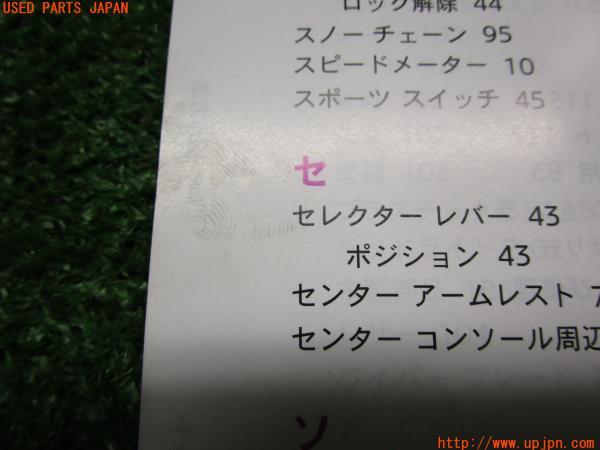 USED PARTS JAPAN
ロック解除 44
スノー チェーン 95
スピードメーター 10
スポーツ スイッチ 45
セ
セレクター レバー 43
ポジション 43
センター アームレスト
センター コンソール周辺
ソ
http://www.upjpn.com/